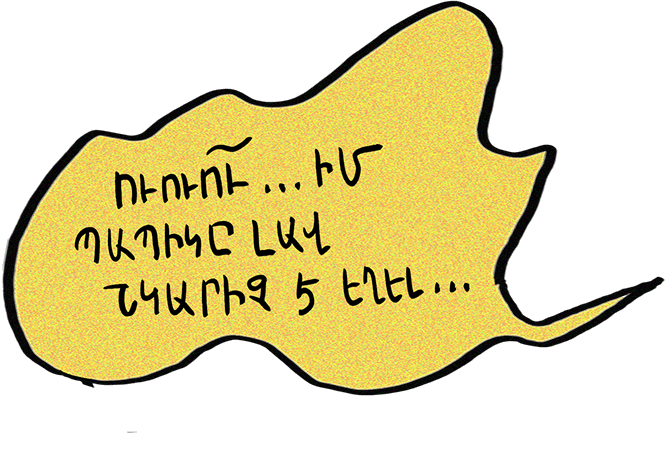 ՈՒՈՒՈ՜Ւ ... ԻՄ
ՊԱՊԻԿԸ ԼԱՎ
ՆԿԱՐԻՉ Է ԵՂԵԼ...